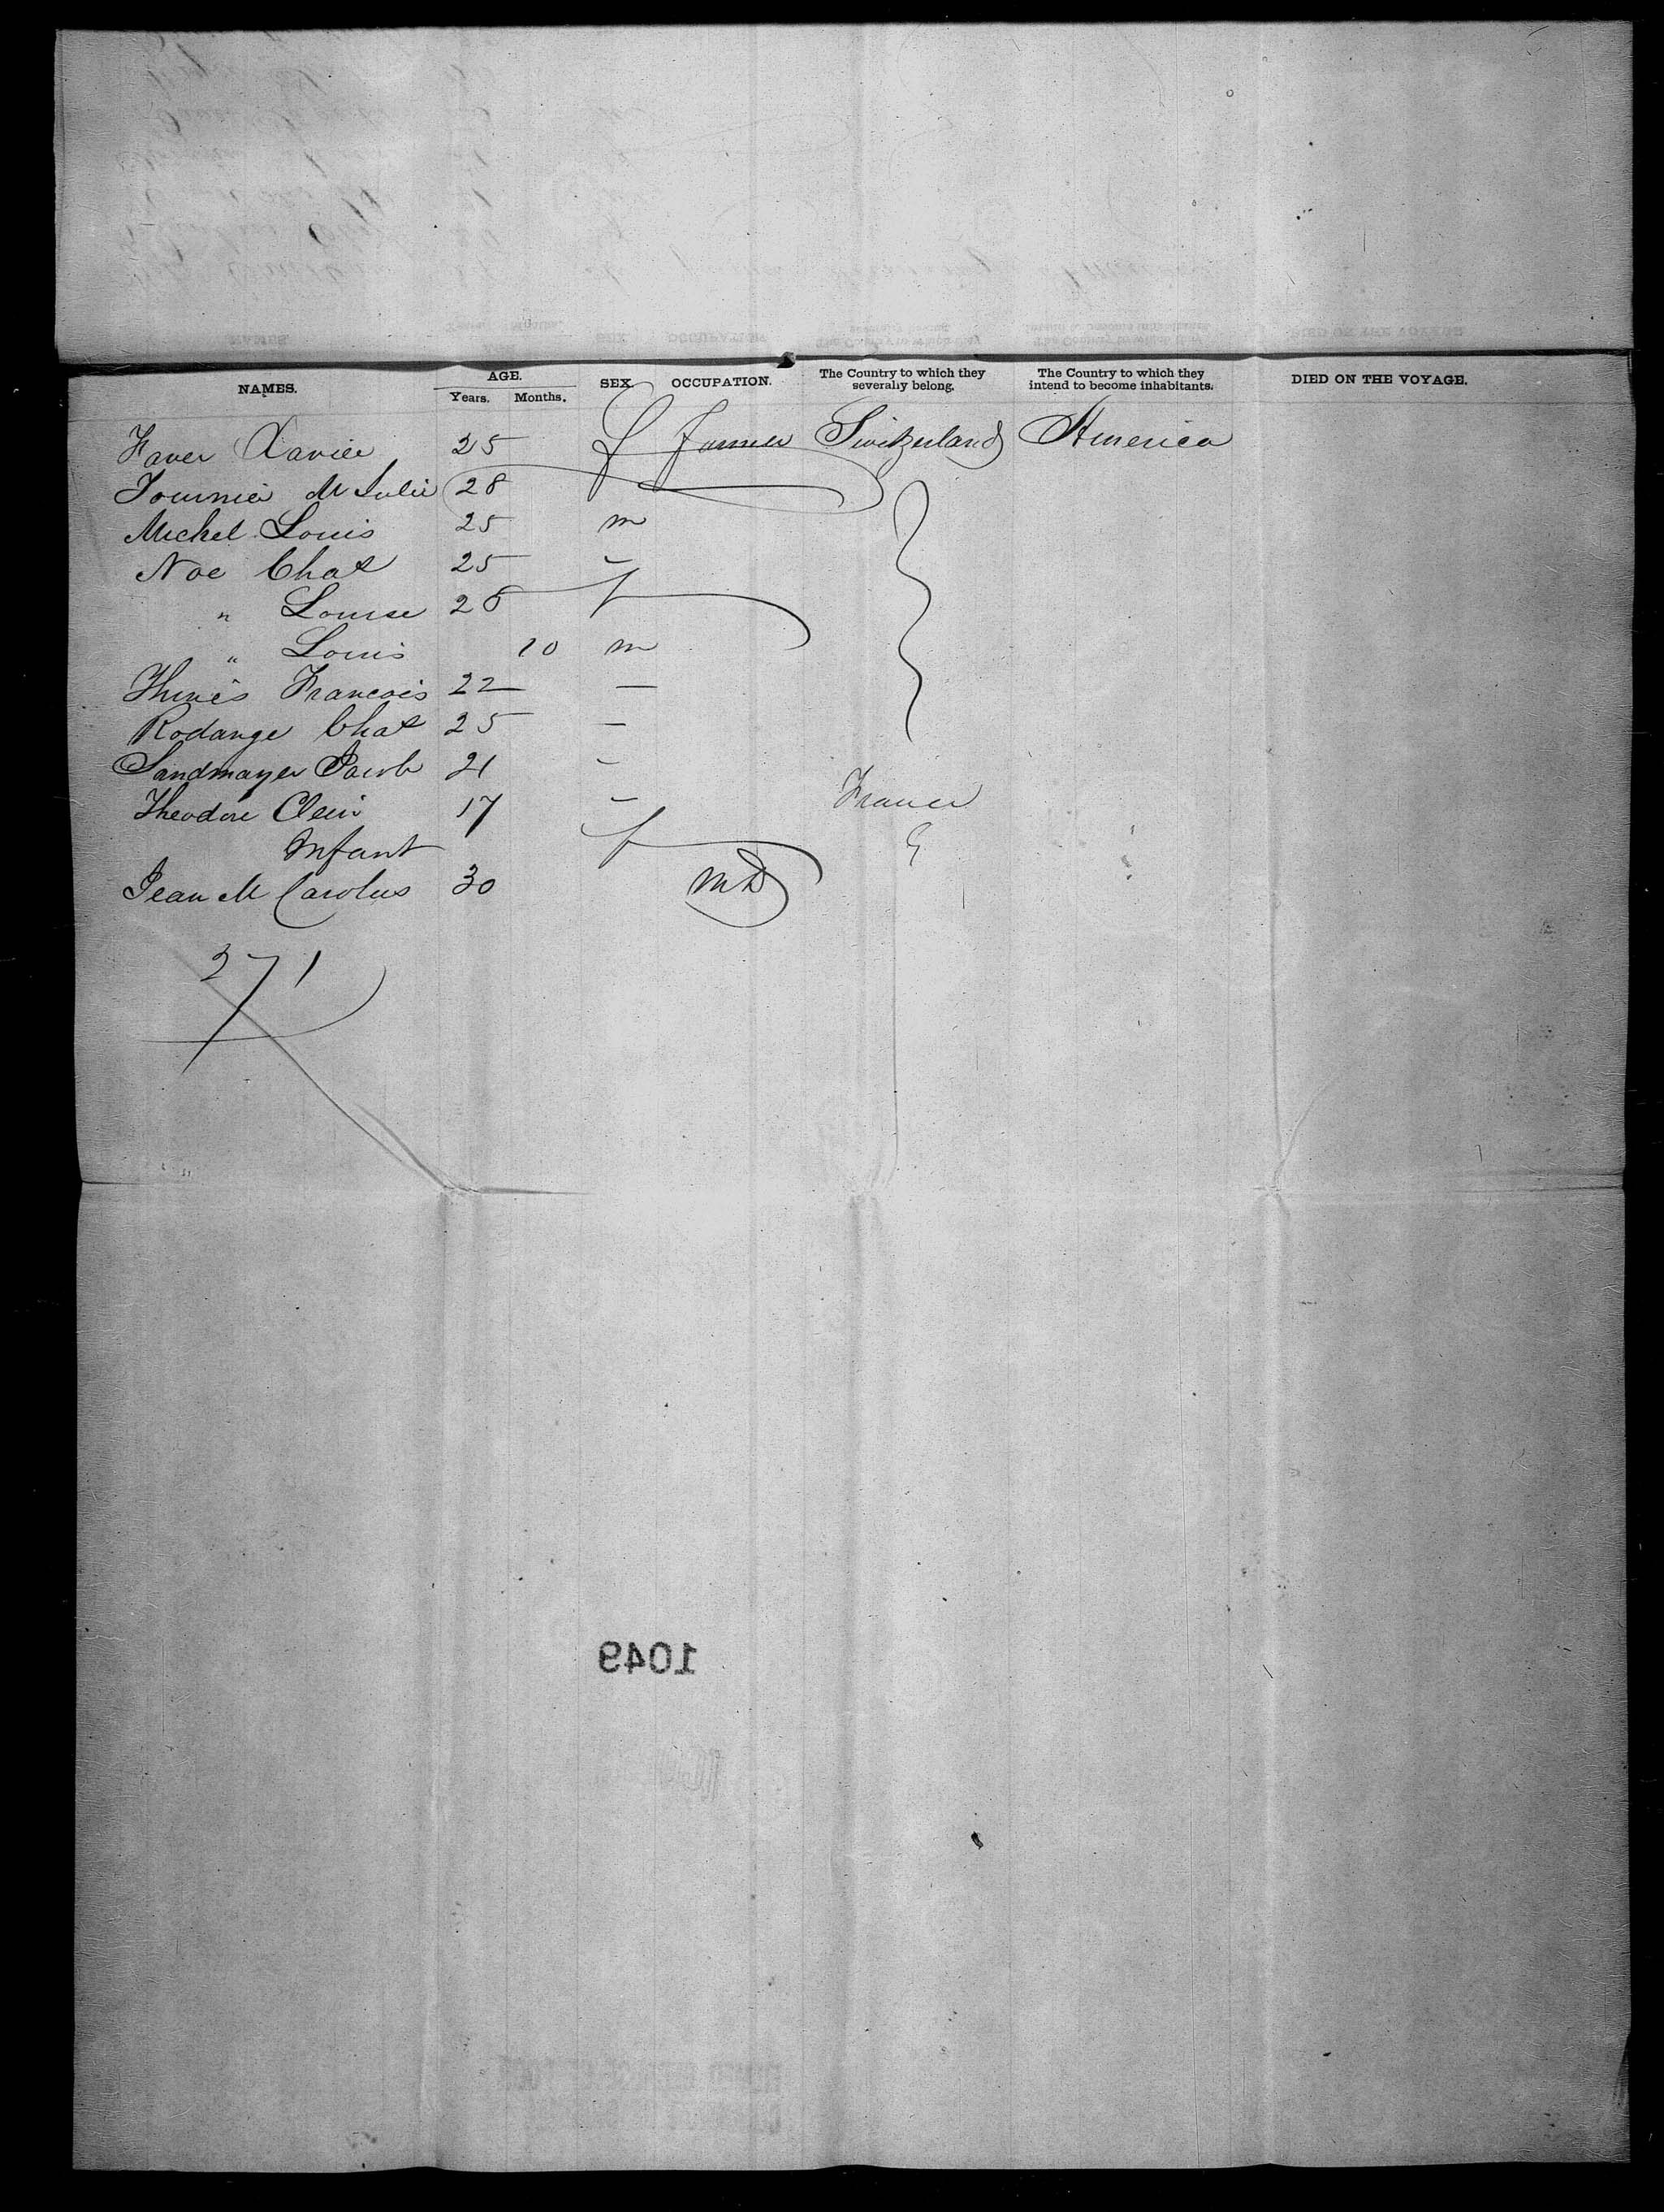 NAMES. AGE. Years. Months. SEX. OCCUPATION. The Country to which they severally belong. The Country to which they intend to become inhabitants. DIED ON THE VOYAGE.
Faver Xavier 25 f Farmer Switzerland America
M Julie 28
Michel Louis 25 m
Noe Chas 25 -
" Louise 28 f
" Louis 10 m
Francois 22 —
Rodange Chas 25 —
Sandmayer Jacob 21 -
Theodore Clein 17 - France
Infant f "
Jean M Carolus 30 MD
271
1049